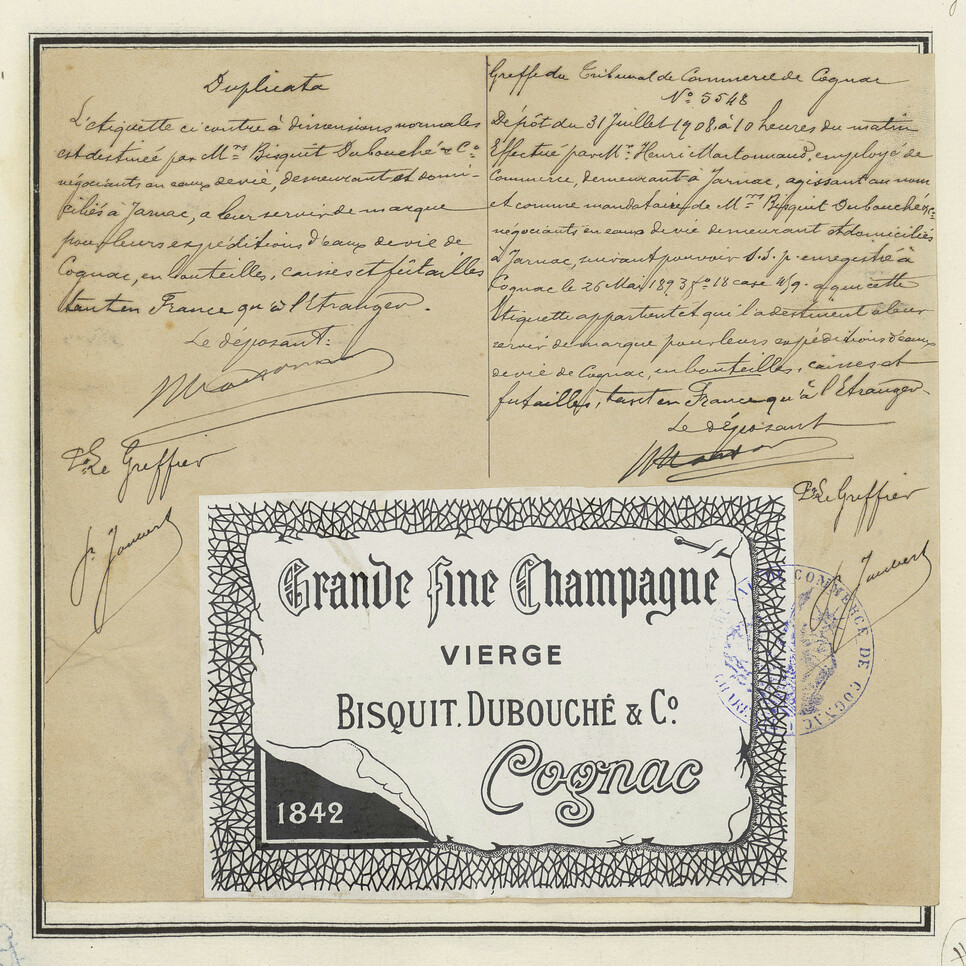 Duplicata
L'étiquette ci contre à dimensions normales
est destinée par Mrs Bisquit Dubouché & Co
négociants en eaux de vie, demeurant et domi-
ciliés à Jarnac, a leur servir de marque
pour leurs expéditions d'eaux de vie de
Cognac, en bouteilles, caisses et fûtailles
tant en France qu'à l'Etranger.
Le déposant:
Pr Le Greffier
Greffe du Tribunal de Commerce de Cognac
No 5548
Dépôt du 31 Juillet 1908 à 10 heures du matin
Effectué par Mr Henri employé de
Commerce, demeurant à Jarnac, agissant au nom
et comme mandataire de Mrs Bisquit Dubouché & Co
négociants en eaux de vie demeurant et domiciliés
à Jarnac, suivant pouvoir S.S.p. enregistré à
Cognac le 26 Mai 1893 fo 18 case a qui cette
Etiquette appartient et qui l'a destinent à leur
servir de marque pour leurs expéditions d'eaux
de vie de Cognac, en bouteilles, caisses et
futailles, tant en France qu'à l'Etranger
Le déposant
Pr Le Greffier
Joubert
Joubert
Grande Fine Champagne
VIERGE
BISQUIT, DUBOUCHÉ & Co.
Cognac
1842
COMMERCE DE COGNAC